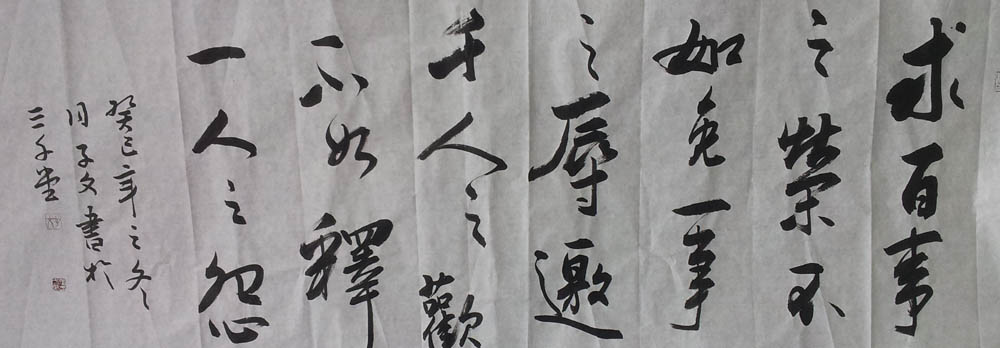 求百事
之榮不
如免一事
之辱邀
千人之歡
不如釋
一人之怨
癸巳年之冬
月子文書於
三千堂